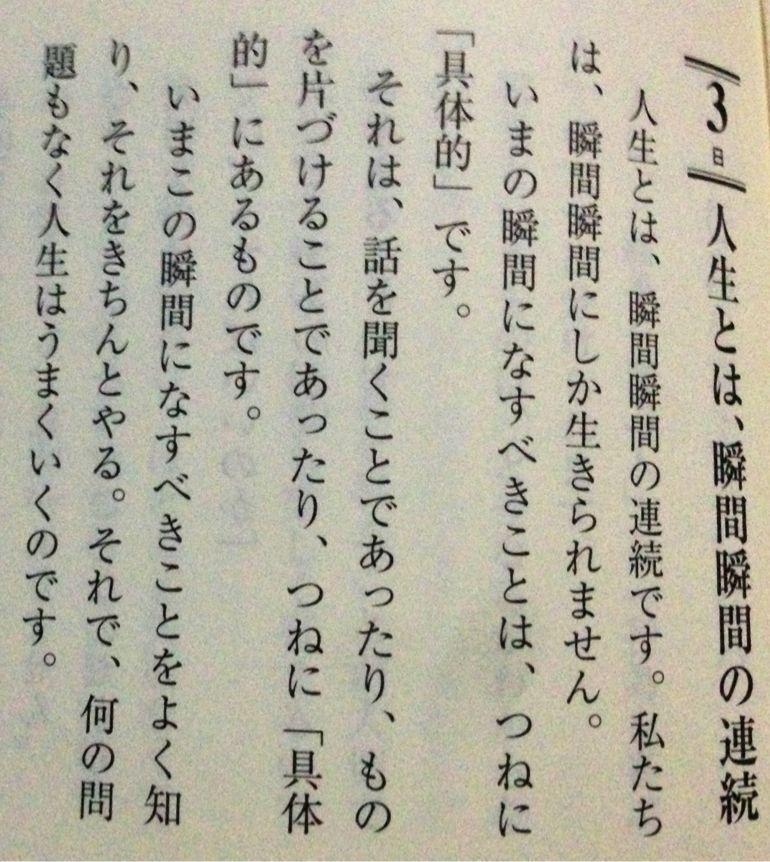 3日 人生とは、瞬間瞬間の連続
人生とは、瞬間瞬間の連続です。私たち
は、瞬間瞬間にしか生きられません。
いまの瞬間になすべきことは、つねに
「具体的」です。
それは、話を聞くことであったり、もの
を片づけることであったり、つねに「具体
的」にあるものです。
いまこの瞬間になすべきことをよく知
り、それをきちんとやる。それで、何の問
題もなく人生はうまくいくのです。